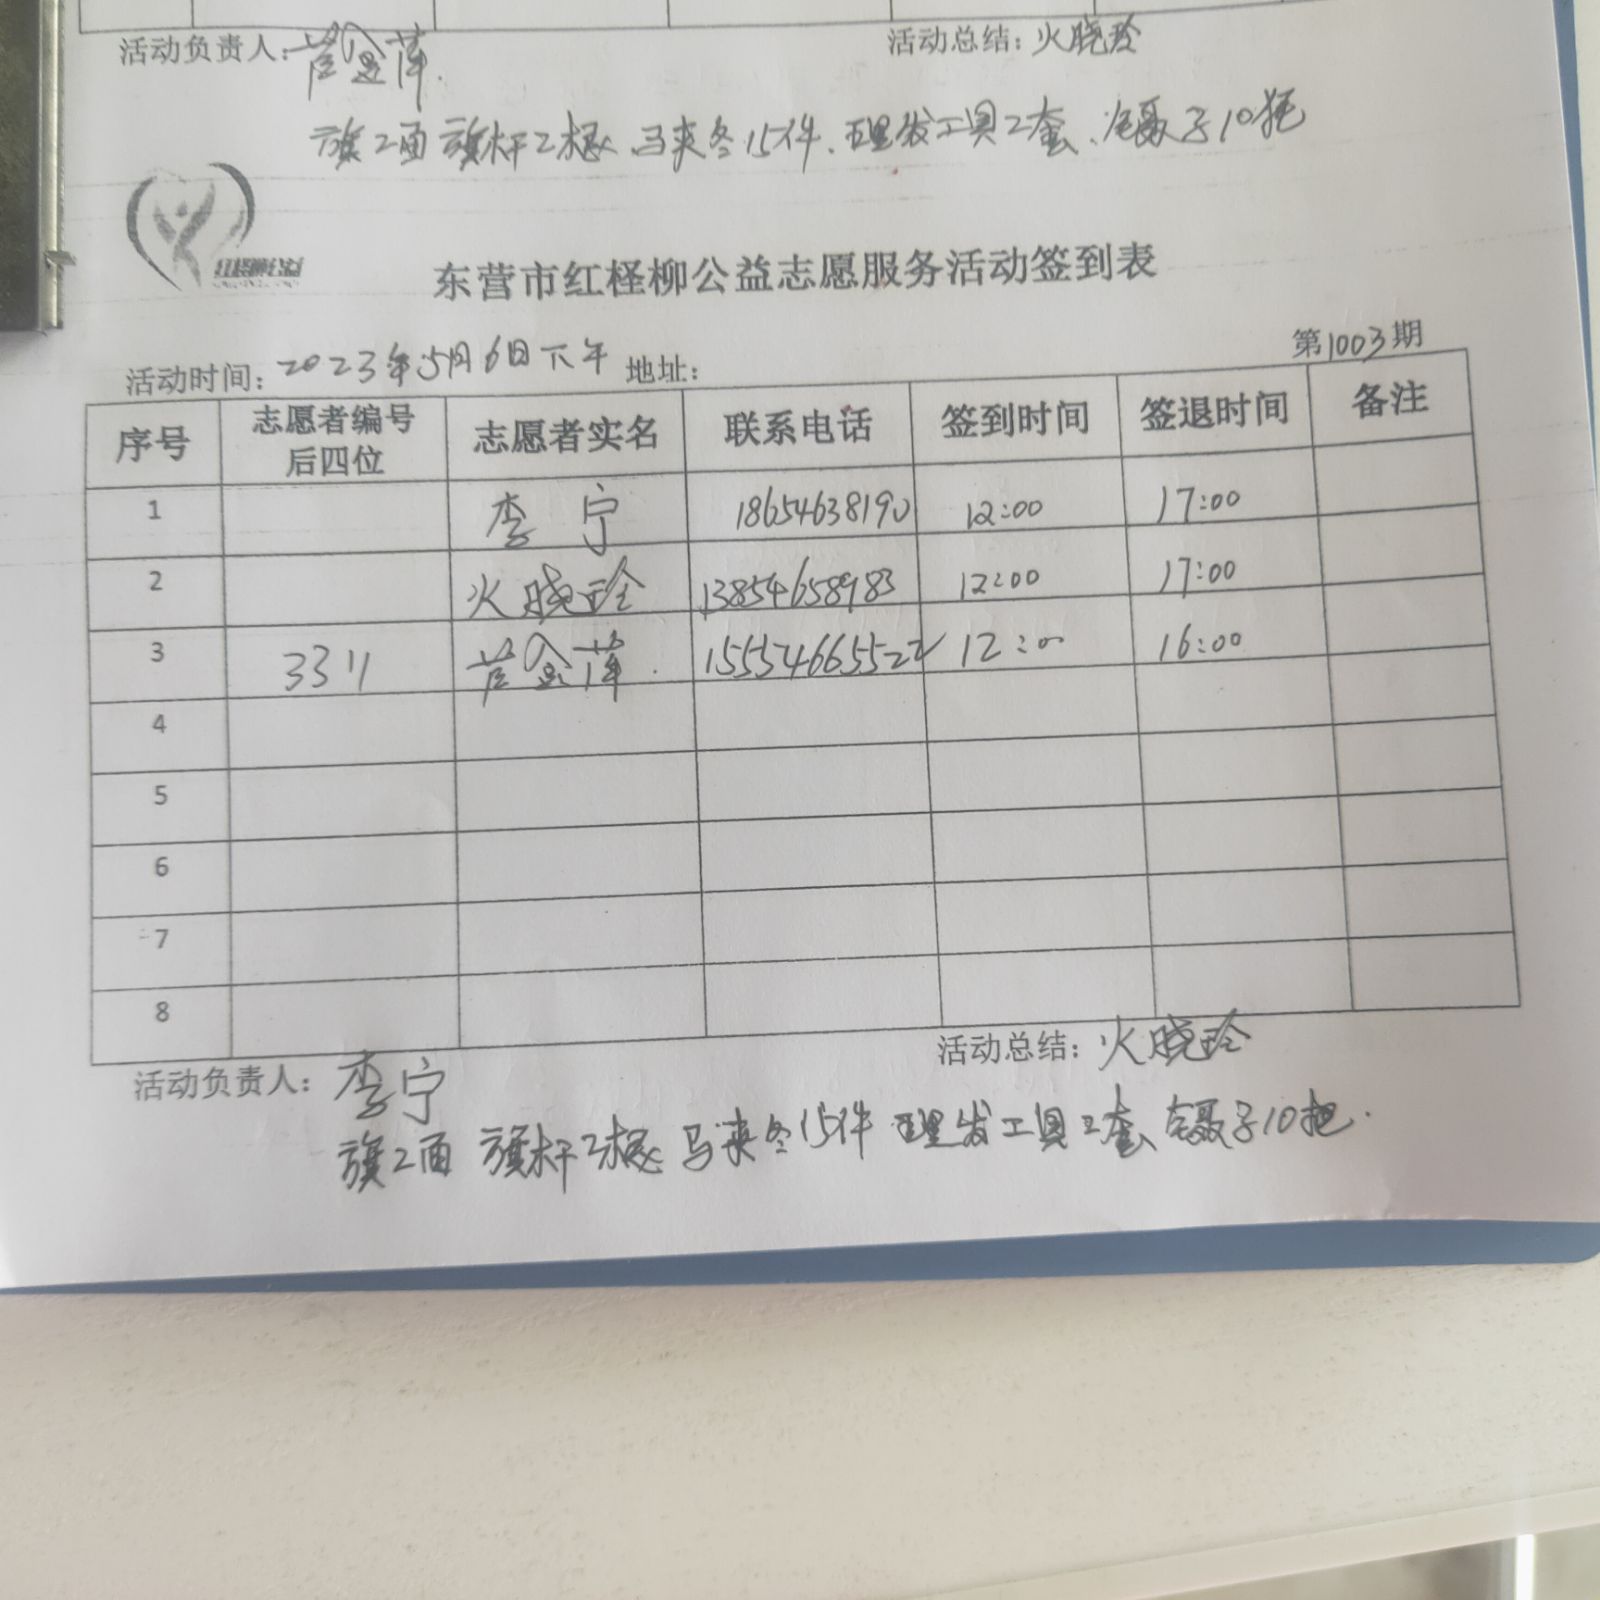 活动负责人: 苫金萍 活动总结: 火晓玲
旗2面 旗杆2根 马夹冬15件 理发工具2套 镊子10把
红柽柳公益
东营市红柽柳公益志愿服务活动签到表
活动时间: 2023年5月6日下午 地址: 第1003期
序号 志愿者编号后四位 志愿者实名 联系电话 签到时间 签退时间 备注
1 李宁 18654638190 12:00 17:00
2 火晓玲 13854658983 12:00 17:00
3 3311 苫金萍 15554665522 12:00 16:00
4
5
6
7
8
活动负责人: 李宁 活动总结: 火晓玲
旗2面 旗杆2根 马夹冬15件 理发工具2套 镊子10把